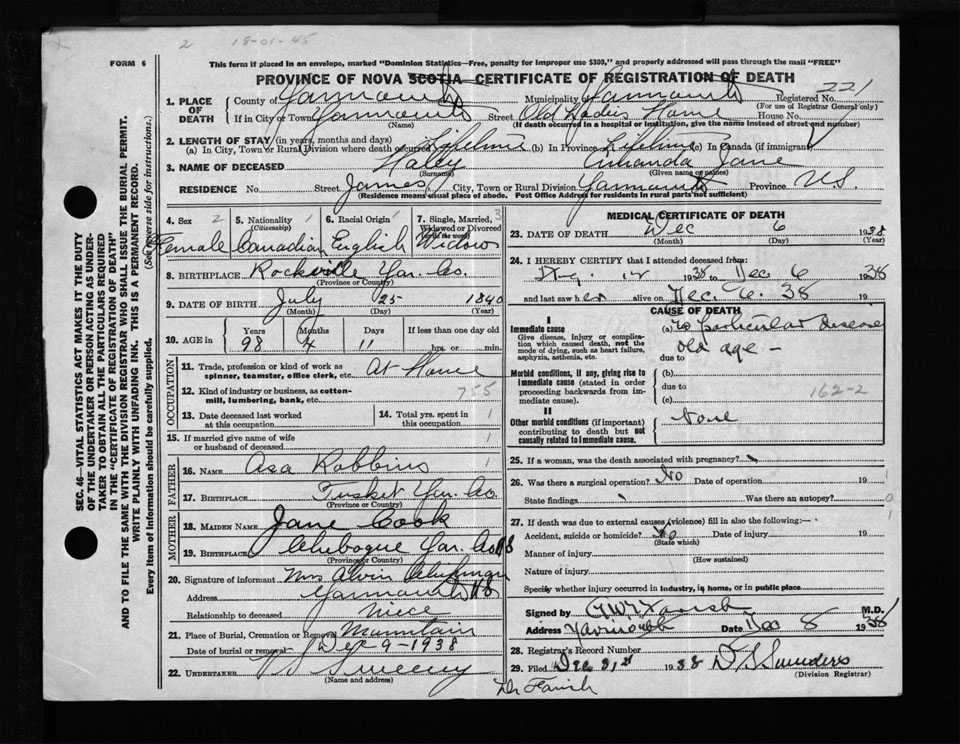 2 18-01-45
FORM 6
This form if placed in an envelope, marked "Dominion Statistics—Free, penalty for improper use $300," and properly addressed will pass through the mail "FREE"
PROVINCE OF NOVA SCOTIA—CERTIFICATE OF REGISTRATION OF DEATH
SEC. 46—VITAL STATISTICS ACT MAKES IT THE DUTY
OF THE UNDERTAKER OR PERSON ACTING AS UNDER-
TAKER TO OBTAIN ALL THE PARTICULARS REQUIRED
IN THE "CERTIFICATE OF REGISTRATION OF DEATH"
AND TO FILE THE SAME WITH THE DIVISION REGISTRAR WHO SHALL ISSUE THE BURIAL PERMIT.
WRITE PLAINLY WITH UNFADING INK. THIS IS A PERMANENT RECORD.
Every item of Information should be carefully supplied. (See reverse side for instructions.)
1. PLACE OF DEATH County of Yarmouth Municipality of Yarmouth Registered No. 221
(For use of Registrar General only)
If in City or Town Yarmouth Street Old Ladies Home House No.
(Name) (If death occurred in a hospital or institution, give the name instead of street and number)
2. LENGTH OF STAY (in years, months and days)
(a) In City, Town or Rural Division where death occurred Lifetime (b) In Province Lifetime (c) In Canada (if immigrant)
3. NAME OF DECEASED Haley Amanda Jane
(Surname) (Given name or names)
RESIDENCE No. Street James City, Town or Rural Division Yarmouth Province N.S.
(Residence means usual place of abode. Post Office Address for residents in rural parts not sufficient)
4. Sex 2 5. Nationality 1 6. Racial Origin 1 7. Single, Married, 3
(Citizenship) Widowed or Divorced
(write the word)
Female Canadian English Widow
8. BIRTHPLACE Rockville Yar. Co.
(Province or Country)
9. DATE OF BIRTH July 25 1840
(Month) (Day) (Year)
10. AGE in Years Months Days If less than one day old
98 4 11 hrs. or min.
OCCUPATION
11. Trade, profession or kind of work as At Home
spinner, teamster, office clerk, etc.
12. Kind of industry or business, as cotton- 755
mill, lumbering, bank, etc.
13. Date deceased last worked 14. Total yrs. spent in 1
at this occupation this occupation
15. If married give name of wife 1
or husband of deceased
FATHER
16. NAME Asa Robbins 1
17. BIRTHPLACE Tusket Yar. Co.
(Province or Country)
MOTHER
18. MAIDEN NAME Jane Cook
19. BIRTHPLACE Chebogue Yar. Co NS
(Province or Country)
20. Signature of informant Mrs Alvin
Address Yarmouth NS
Relationship to deceased Niece
21. Place of Burial, Cremation or Removal Mountain
Date of burial or removal Dec 9-1938
22. UNDERTAKER Sweeny
(Name and address)
MEDICAL CERTIFICATE OF DEATH
23. DATE OF DEATH Dec 6 1938
(Month) (Day) (Year)
24. I HEREBY CERTIFY that I attended deceased from:
Aug. 12 1938 to Dec 6 1938
and last saw her alive on Dec. 6. 38 19
CAUSE OF DEATH
I
Immediate cause (a) no particular disease
Give disease, injury or complica-
tion which caused death, not the
mode of dying, such as heart failure,
asphyxia, asthenia, etc.
old age —
due to
Morbid conditions, if any, giving rise to (b)
immediate cause (stated in order due to
proceeding backwards from im-
mediate cause). (c) 162-2
II
Other morbid conditions (if important) None
contributing to death but not
causally related to immediate cause.
25. If a woman, was the death associated with pregnancy?
26. Was there a surgical operation? No Date of operation 19
State findings Was there an autopsy? 0
27. If death was due to external causes (violence) fill in also the following:—
Accident, suicide or homicide? No Date of injury 19
(State which)
Manner of injury
(How sustained)
Nature of injury
Specify whether injury occurred in industry, in home, or in public place
Signed by Farish M.D.
Address Yarmouth Date Dec 8 1938
28. Registrar's Record Number
29. Filed Dec 31st 1938 Saunders
(Division Registrar)
Dr Farish